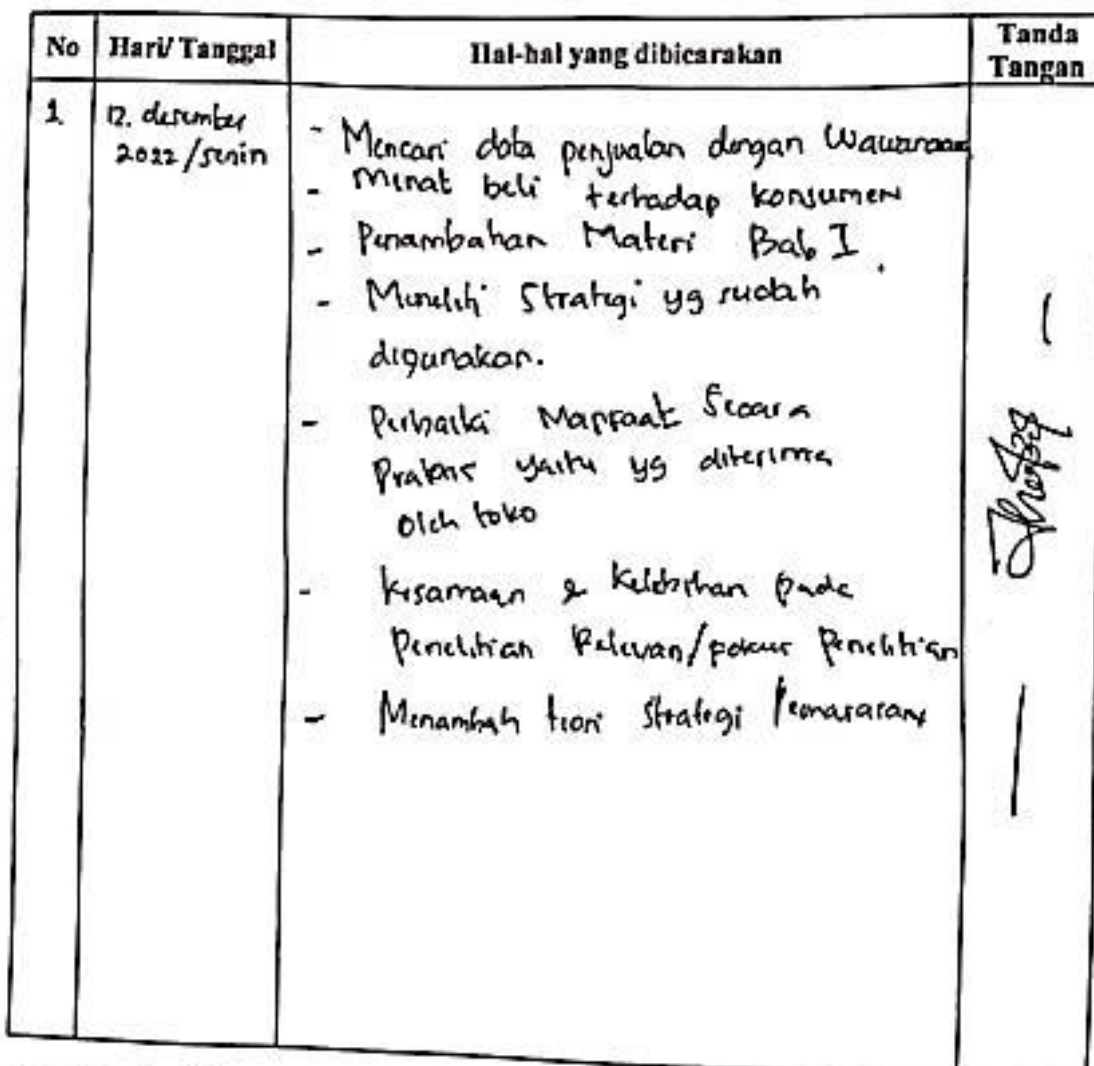 No Hari/ Tanggal Hal-hal yang dibicarakan Tanda Tangan
1. 12. desember
2022/senin
- Mencari data penjualan dengan Wawancara
- Minat beli terhadap konsumen
- Penambahan Materi Bab I.
- Meneliti Strategi yg sudah
digunakan.
- Perbaiki Manfaat Secara
Praktis yaitu yg diterima
Oleh toko
- kesamaan & Kelebihan pada
Penelitian Relevan/pokus Penelitian
- Menambah teori Strategi Pemasaran